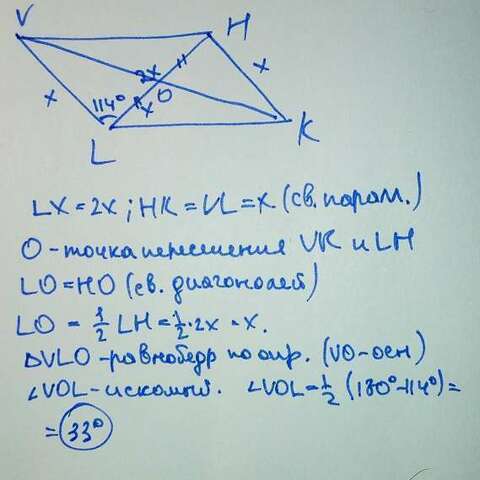 V H
x 2x x
114° x O
L K
LX = 2x ; HK = VL = x (св. парал.)
O - точка пересешения VK и LH
LO = HO (св. диагонолей)
LO = 1/2 LH = 1/2 · 2x = x.
△VLO - равнобедр по опр. (VO - осн)
∠VOL - искомый. ∠VOL = 1/2 (180° - 114°) =
= 33°